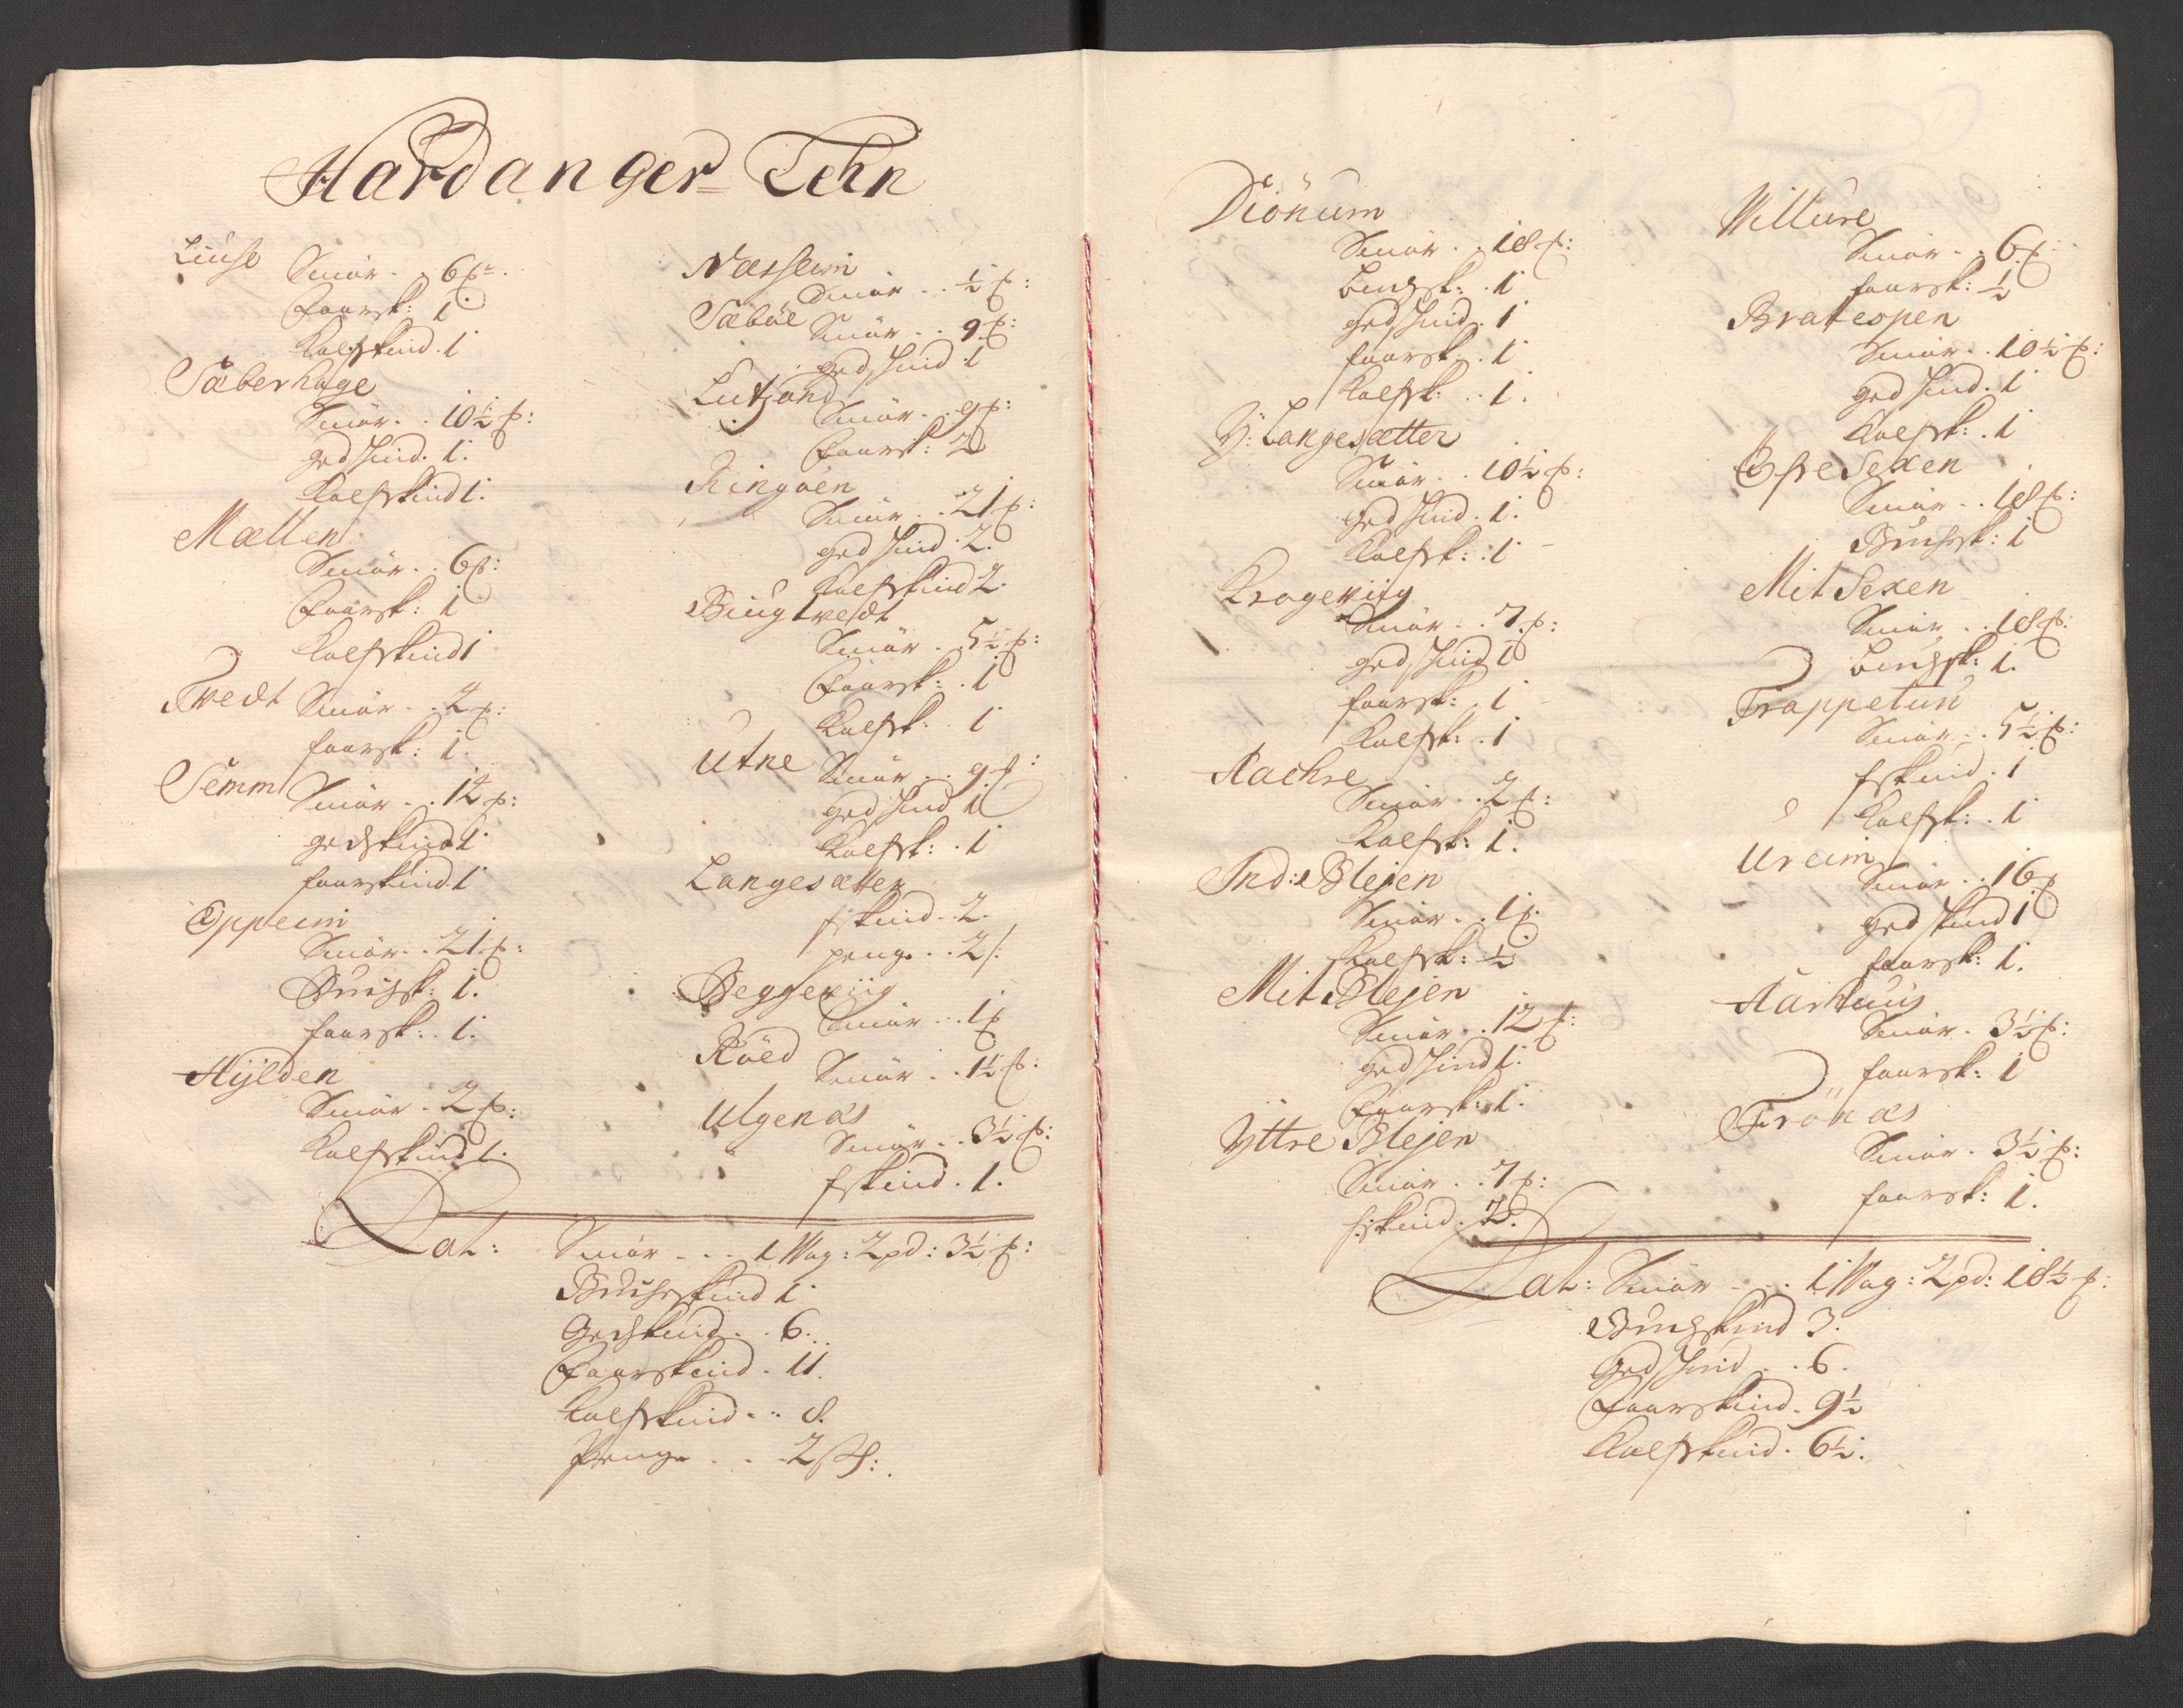 Hardanger Lehn
Liuse
Smör . . 6 ℔:
Faarsk: 1
Kalfskind . 1
Sæberhage
Smör . . 10½ ℔:
gedskind . 1.
Kalfskind 1.
Mællen
Smör . . 6 ℔:
Faarsk: 1
Kalfskind 1
Tvedt
Smör . . 4 ℔:
faarsk: 1.
Semm
Smör . . 14 ℔:
gedskind 1
faarskind . 1
Oppeim
Smör . . 21 ℔:
Buchsk: 1.
faarsk: . 1.
Hylden
Smör . 2 ℔:
Kalfskind 1.
Næsheim
Smör . . ½ ℔:
Sæbøe
Smör . . 9 ℔:
gedskind 1
Lutzand
Smör . . 9 ℔:
Faarsk: 2
Ringøen
Smör . . 21 ℔:
gedskind . 2.
Kalfskind 2.
Biugtvedt
Smör . 5½ ℔:
Faarsk: . 1
Kalfsk: . 1
Utne
Smör . . 9 ℔:
gedskind 1
Kalfsk: . 1
Langesætter
fskind . . 2.
penge . . 2 ß.
Beggeviig
Smör . . 1 ℔
Røed
Smör . . 1½ ℔:
Ulgenæs
Smör . . 3½ ℔:
fskind . 1.
Lat: Smör . . . 1 Wag: 2 pd: 3½ ℔:
Buchskind 1
Gedskind . . 6.
Faarskind . 11.
Kalfskind . . 8.
Penge . . . 2 ß:
Diönum
Smör . . 18 ℔:
buchsk: . 1
gedskind . 1
faarsk: . 1
Kalfsk: . . 1.
Y: Langesætter
Smör . . 10½ ℔:
gedskind . 1.
Kalfsk: . 1
Krageviig
Smör . . 7 ℔:
gedskind 1
faarsk: . 1
Kalfsk: . 1
Aachre
Smör . . 2 ℔:
Kalfsk: 1.
Ind:e Blejen
Smör . . 1 ℔.
Kalfsk: ½
Mit Blejen
Smör . . 12 ℔:
gedskind 1.
Faarsk: 1.
Yttre Blejen
Smör . . 7 ℔:
fskind . 2.
Villure
Smör . . 6 ℔:
faarsk: ½
Bratespen
Smör . . 10½ ℔:
gedskind . 1
Kalfsk: . 1
Øfre Sexen
Smör . . 18 ℔:
Buchsk: 1
Mit Sexen
Smör . . 18 ℔:
buchsk: 1.
Trappetun
Smör . . 5½ ℔:
fskind . 1
Kalfsk: . 1
Ureim
Smör . . 16 ℔
gedskind 1
faarsk: 1.
Aarhuus
Smör . 3½ ℔:
faarsk: 1
Frönæs
Smör . 3½ ℔:
faarsk: 1.
Lat: Smör . . . 1 Wag: 2 pd: 18½ ℔:
Buchskind 3.
Gedskind . . 6.
Faarskind . 9½
Kalfskind . 6½.